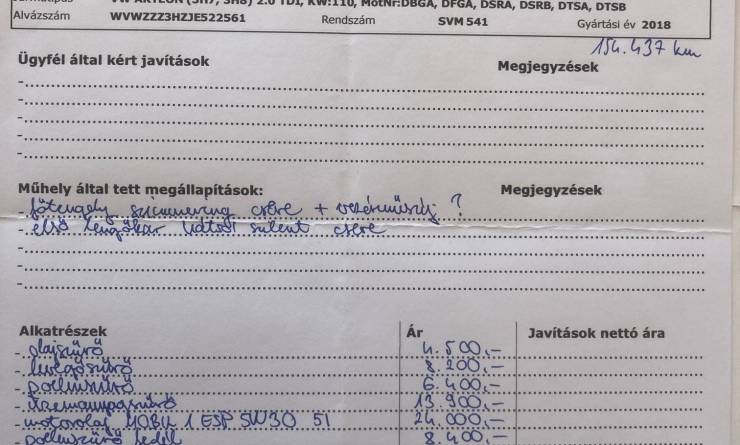 VW ARTEON (3H7, 3H8) 2.0 TDI, KW:110, MotNr:DBGA, DFGA, DSRA, DSRB, DTSA, DTSB
Alvázszám WVWZZZ3HZJE522561 Rendszám SVM 541 Gyártási év 2018
154.437 km
Ügyfél által kért javítások Megjegyzések
-
-
-
-
-
Műhely által tett megállapítások: Megjegyzések
- főtengely szimmering csere + vezérműszíj ?
- első lengőkar hátsó szilent csere
-
-
-
Alkatrészek Ár Javítások nettó ára
- olajszűrő 4.500,-
- levegőszűrő 8.200,-
- pollenszűrő 6.400,-
- üzemanyagszűrő 13.900,-
- motorolaj MOBIL 1 ESP 5W30 5l 24.000,-
- pollenszűrő fedél 8.400,-